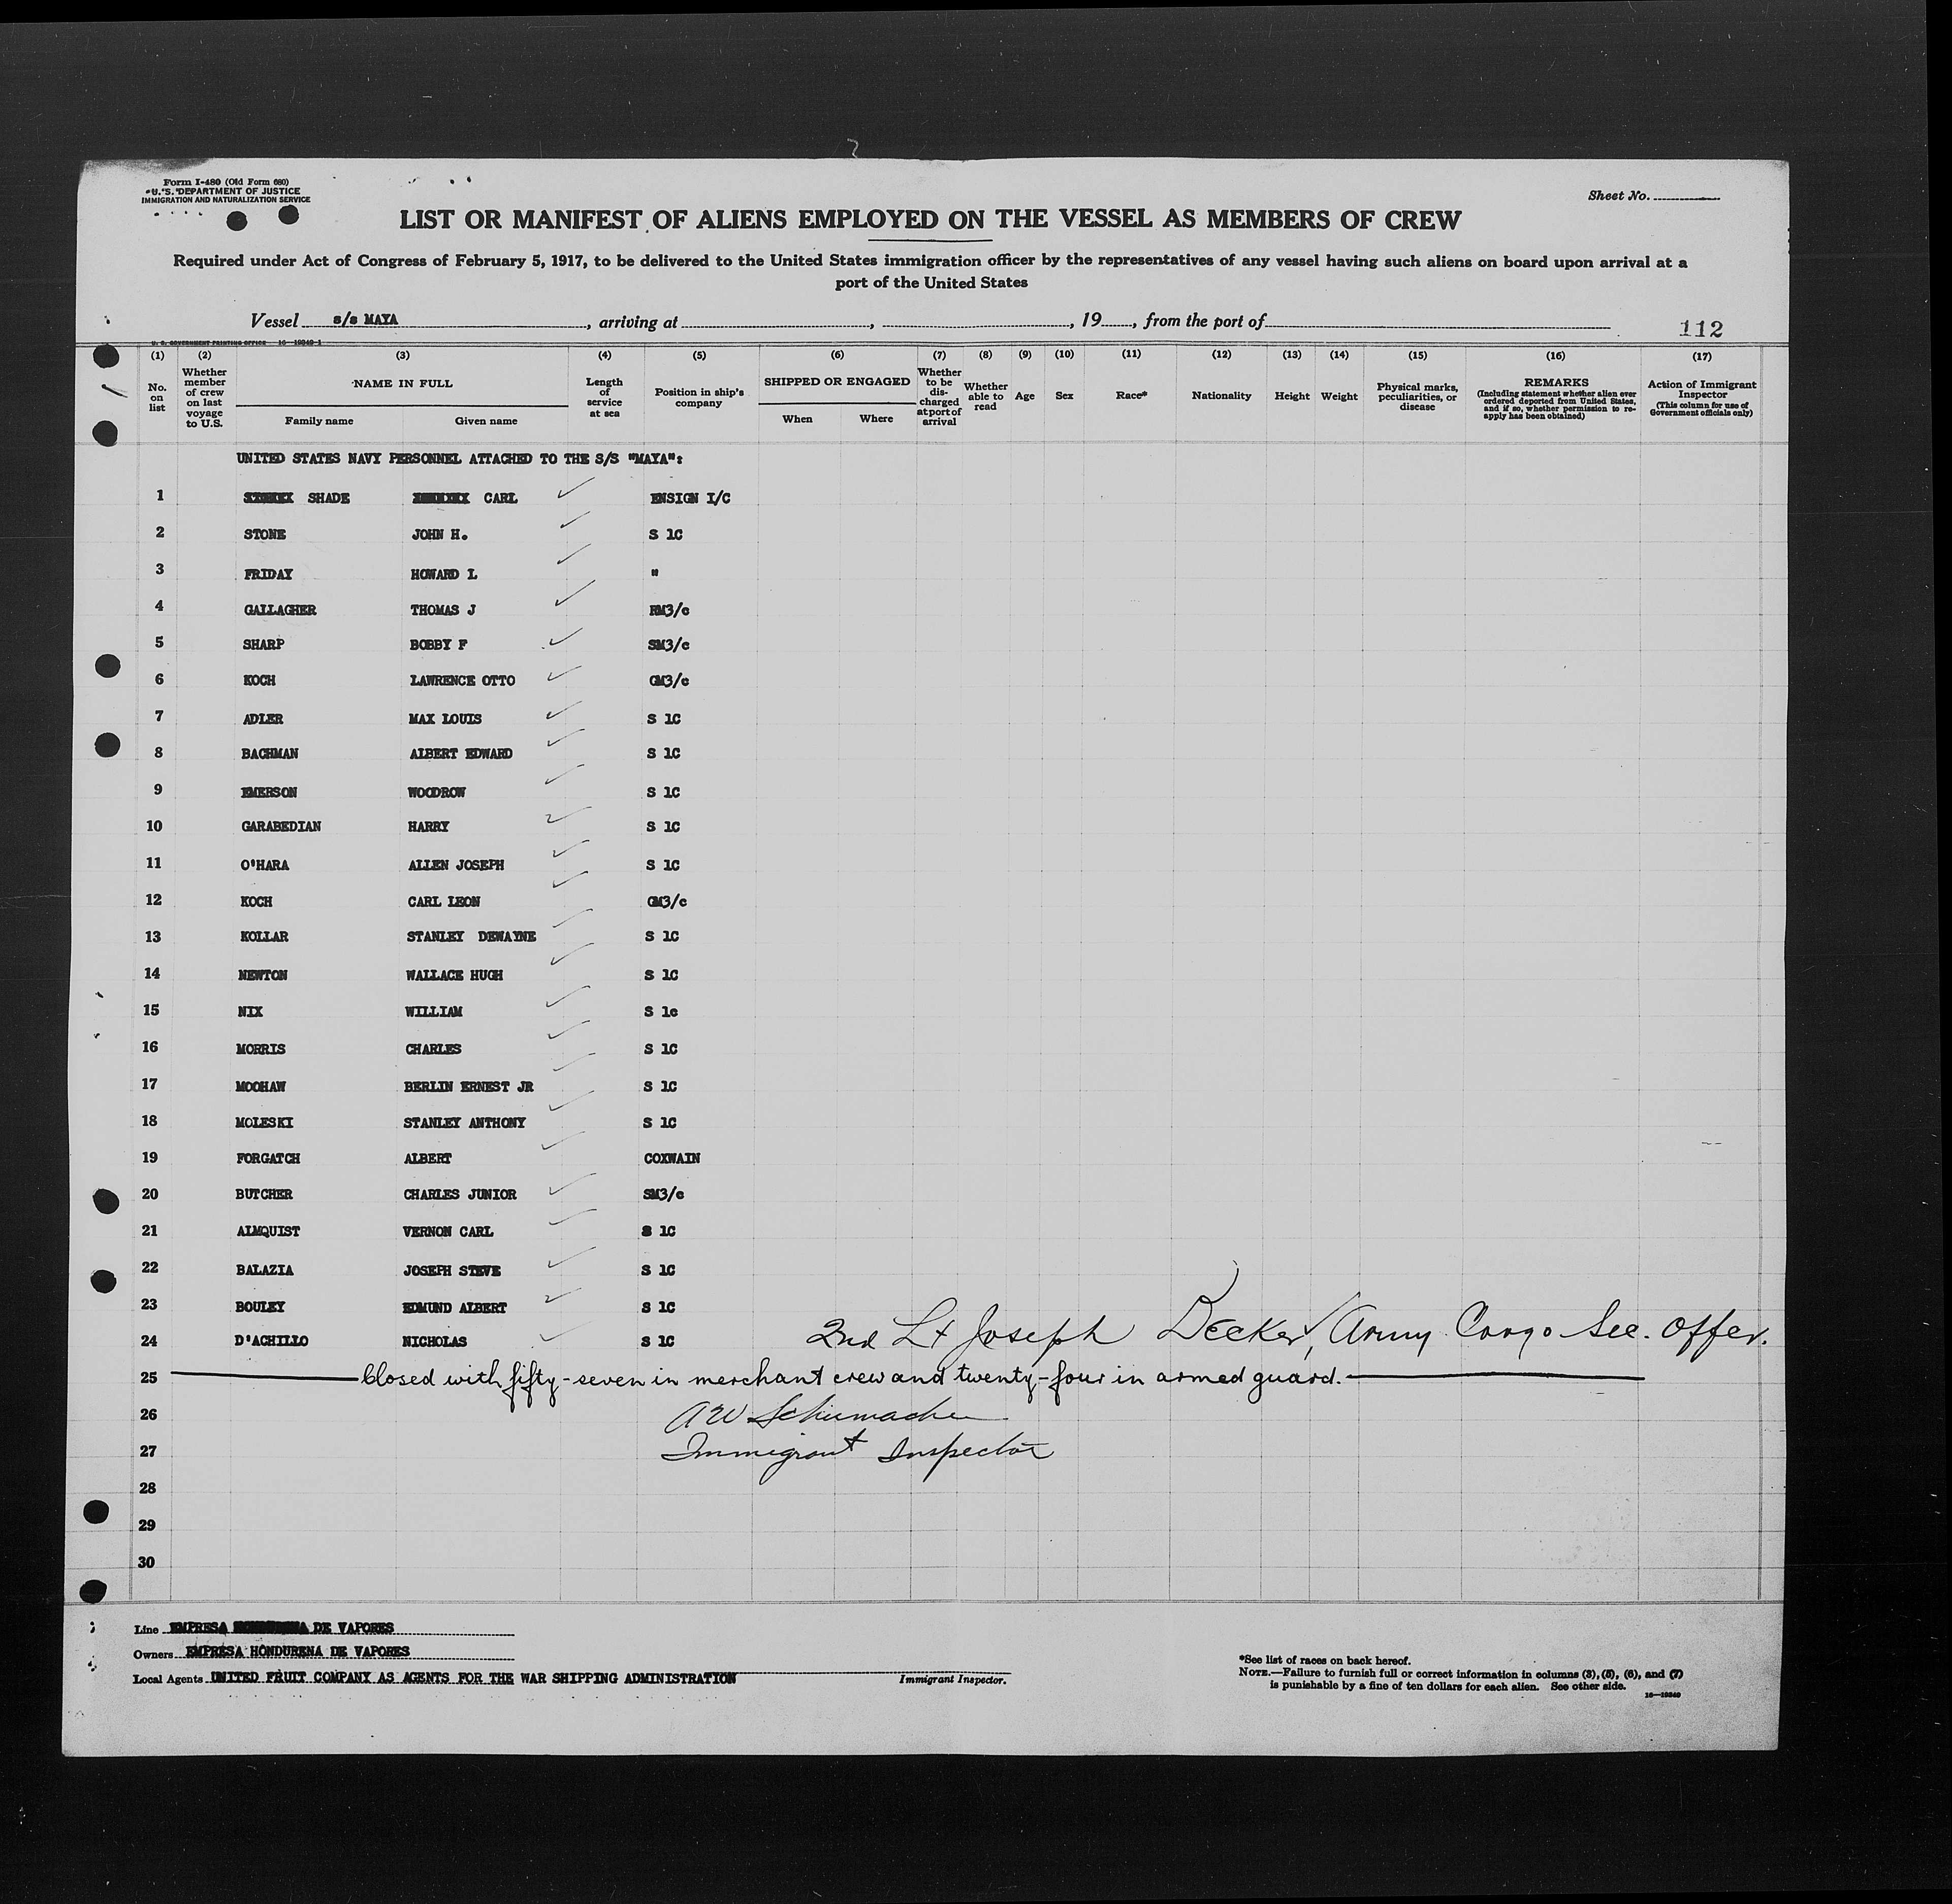 Form I-480 (Old Form 680)
U. S. DEPARTMENT OF JUSTICE
IMMIGRATION AND NATURALIZATION SERVICE
Sheet No.
LIST OR MANIFEST OF ALIENS EMPLOYED ON THE VESSEL AS MEMBERS OF CREW
Required under Act of Congress of February 5, 1917, to be delivered to the United States immigration officer by the representatives of any vessel having such aliens on board upon arrival at a
port of the United States
Vessel s/s MAYA, arriving at , , 19 , from the port of
112
U. S. GOVERNMENT PRINTING OFFICE 16-19349-1
(1) No. on list
(2) Whether member of crew on last voyage to U.S.
(3) NAME IN FULL Family name Given name
(4) Length of service at sea
(5) Position in ship's company
(6) SHIPPED OR ENGAGED When Where
(7) Whether to be dis-charged at port of arrival
(8) Whether able to read
(9) Age
(10) Sex
(11) Race*
(12) Nationality
(13) Height
(14) Weight
(15) Physical marks, peculiarities, or disease
(16) REMARKS (Including statement whether alien ever ordered deported from United States, and if so, whether permission to re-apply has been obtained)
(17) Action of Immigrant Inspector (This column for use of Government officials only)
UNITED STATES NAVY PERSONNEL ATTACHED TO THE S/S "MAYA":
1 SHADE CARL ENSIGN I/C
2 STONE JOHN H. S 1C
3 FRIDAY HOWARD L "
4 GALLAGHER THOMAS J RM3/c
5 SHARP BOBBY F SM3/c
6 KOCH LAWRENCE OTTO GM3/c
7 ADLER MAX LOUIS S 1C
8 BACHMAN ALBERT EDWARD S 1C
9 EMERSON WOODROW S 1C
10 GARABEDIAN HARRY S 1C
11 O'HARA ALLEN JOSEPH S 1C
12 KOCH CARL LEON GM3/c
13 KOLLAR STANLEY DEWAYNE S 1C
14 NEWTON WALLACE HUGH S 1C
15 NIX WILLIAM S 1c
16 MORRIS CHARLES S 1C
17 MOOHAW BERLIN ERNEST JR S 1C
18 MOLESKI STANLEY ANTHONY S 1C
19 FORGATCH ALBERT COXWAIN
20 BUTCHER CHARLES JUNIOR SM3/c
21 ALMQUIST VERNON CARL S 1C
22 BALAZIA JOSEPH STEVE S 1C
23 BOULEY EDMUND ALBERT S 1C
24 D'ACHILLO NICHOLAS S 1C 2nd Lt Joseph Decker, Army Cargo Sec. Offcr.
25 Closed with fifty-seven in merchant crew and twenty-four in armed guard.
26 A W Schumacher
27 Immigrant Inspector
28
29
30
Line EMPRESA DE VAPORES
Owners EMPRESA HONDURENA DE VAPORES
Local Agents UNITED FRUIT COMPANY AS AGENTS FOR THE WAR SHIPPING ADMINISTRATION
Immigrant Inspector.
*See list of races on back hereof.
NOTE.—Failure to furnish full or correct information in columns (3), (5), (6), and (7)
is punishable by a fine of ten dollars for each alien. See other side.
16—19349